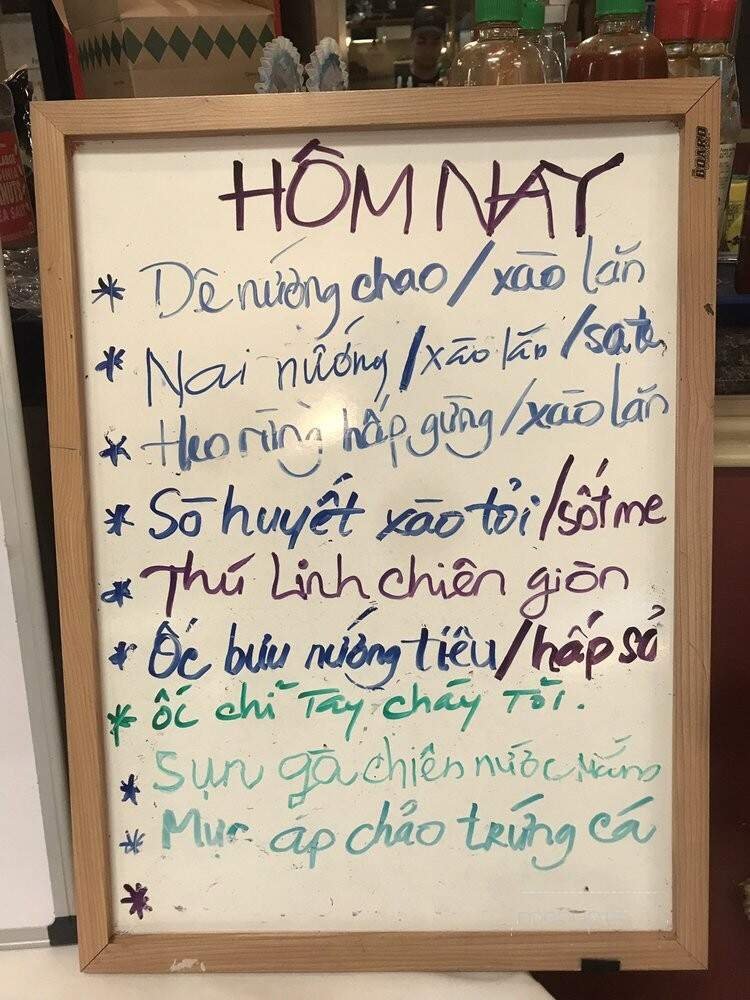 HÔM NAY
* Dê nướng chao / xào lăn
* Nai nướng / xào lăn / sate
* Heo rừng hấp gừng / xào lăn
* Sò huyết xào tỏi / sốt me
* Thú Linh chiên giòn
* Ốc bưu nướng tiêu / hấp sả
* ốc chỉ Tay cháy Tỏi.
* Sụn gà chiên nước Mắm
* Mực áp chảo trứng cá
*
BOARD